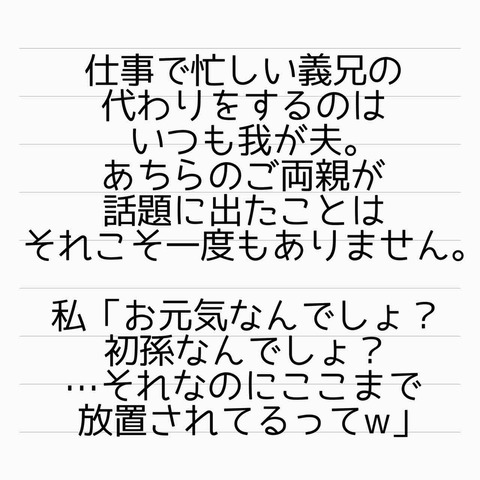 仕事で忙しい義兄の
代わりをするのは
いつも我が夫。
あちらのご両親が
話題に出たことは
それこそ一度もありません。
私「お元気なんでしょ？
初孫なんでしょ？
…それなのにここまで
放置されてるってw」